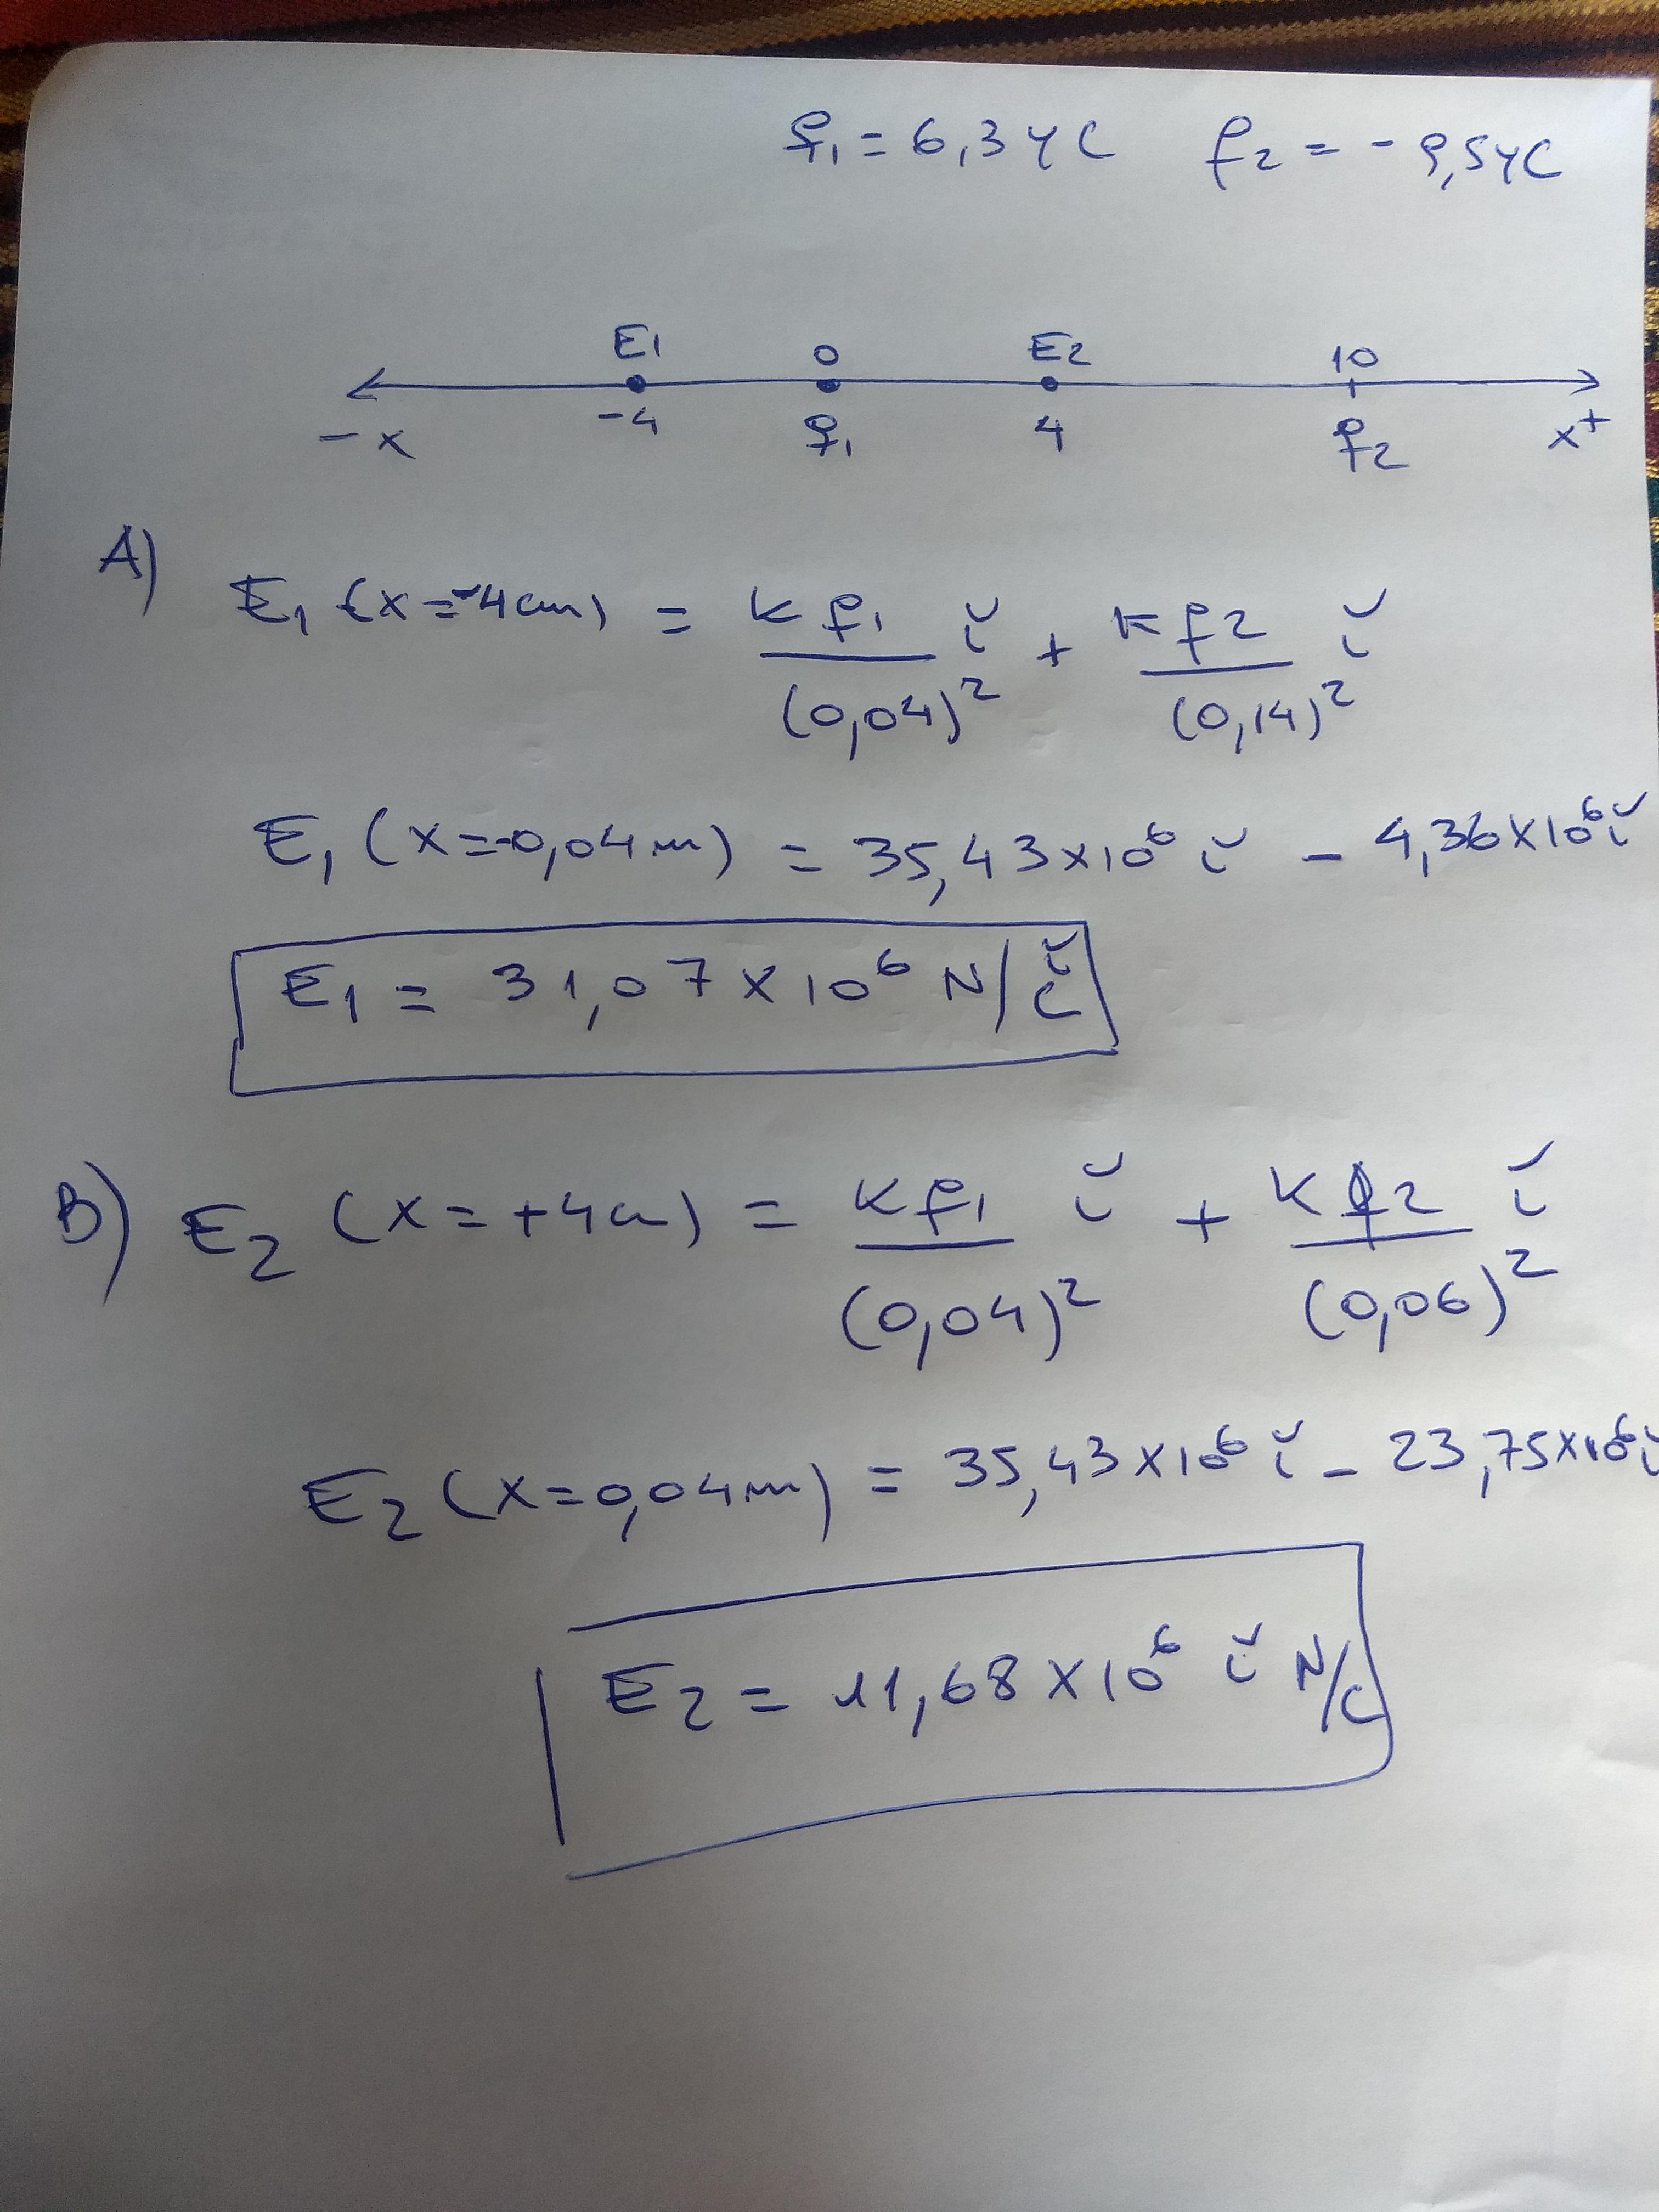 q₁ = 6,3 μC q₂ = - 9,5 μC
E1 0 E2 10
-x -4 q₁ 4 q₂ x⁺
A)
E₁ (x = -4cm) = k q₁ / (0,04)² ĭ + k q₂ / (0,14)² ĭ
E₁ (x = -0,04 m) = 35,43 x 10⁶ ĭ - 4,36 x 10⁶ ĭ
E₁ = 31,07 x 10⁶ N/C ĭ
B) E₂ (x = +4cm) = k q₁ / (0,04)² ĭ + k q₂ / (0,06)² ĭ
E₂ (x = 0,04 m) = 35,43 x 10⁶ ĭ - 23,75 x 10⁶ ĭ
E₂ = 11,68 x 10⁶ ĭ N/C